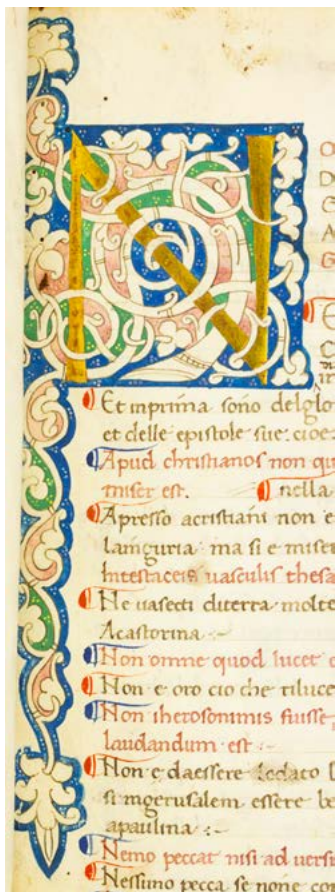 N
O
D
G
A
G
E
Et inprima sono del glo
et delle epistole sue: cioe
Apud christianos non qui
miser est. nella
Apresso acristiani non e
lamguria ma si e miser
Intestaceis uasculis thesa
Ne uasecti diterra molte
Acastorina :~
Non omne quod lucet e
Non e oro cio che riluce
Non iherosonimis fuisse
laudandum est :~
Non e daessere lodato l
si ingerusalem essere be
apaulina :~
Nemo peccat nisi ad uersu
Nessuno pecca se none